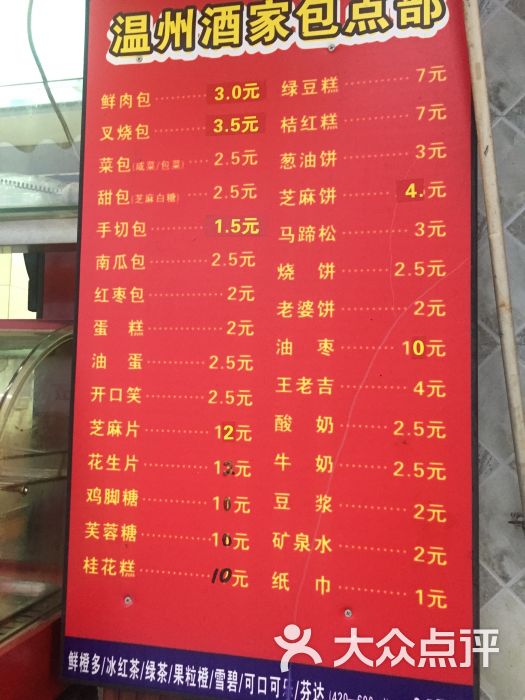 温州酒家包点部
鲜肉包 3.0元
叉烧包 3.5元
菜包(咸菜/包菜) 2.5元
甜包(芝麻白糖) 2.5元
手切包 1.5元
南瓜包 2.5元
红枣包 2元
蛋糕 2元
油蛋 2.5元
开口笑 2.5元
芝麻片 12元
花生片 12元
鸡脚糖 10元
芙蓉糖 10元
桂花糕 10元
绿豆糕 7元
桔红糕 7元
葱油饼 3元
芝麻饼 4.元
马蹄松 3元
烧饼 2.5元
老婆饼 2元
油枣 10元
王老吉 4元
酸奶 2.5元
牛奶 2.5元
豆浆 2元
矿泉水 2元
纸巾 1元
鲜橙多/冰红茶/绿茶/果粒橙/雪碧/可口可乐/芬达
大众点评